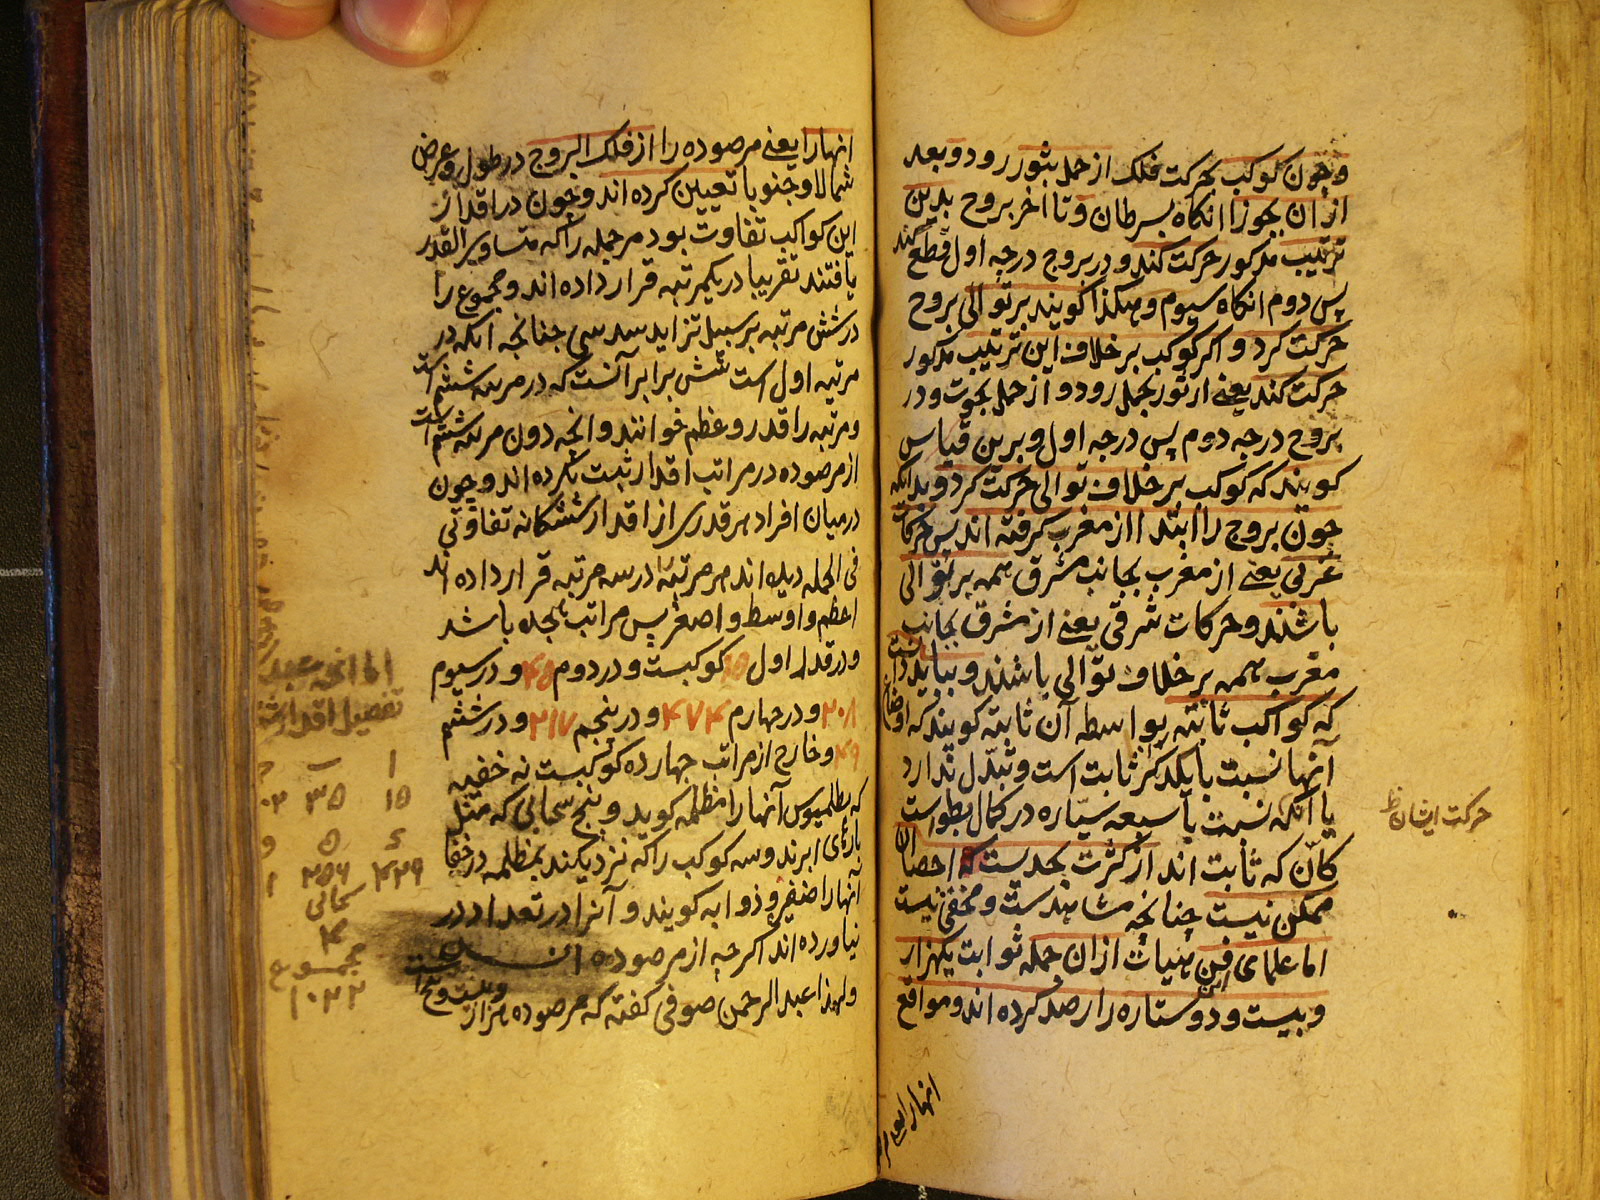 وچون کوکب بحرکت فلک از حمل بثور رود و بعد
از ان بجوزا انکاه بسرطان و تا اخر بروج بدین
ترتیب مذکور حرکت کند و در بروج درجه اول قطع کند
پس دوم انکاه سیوم و هکذا کویند بر توالی بروج
حرکت کرد و اکر کوکب بر خلاف این ترتیب مذکور
حرکت کند یعنی از ثور بحمل رود و از حمل بحوت و در
بروج درجه دوم پس درجه اول و برین قیاس
کویند که کوکب بر خلاف توالی حرکت کرد و بدانکه
چون بروج را ابتدا از مغرب کرفته اند پس حرکات
غربی یعنی از مغرب بجانب مشرق همه بر توالی
باشند و حرکات شرقی یعنی از مشرق بجانب
مغرب همه بر خلاف توالی باشند و بباید دانست
که کواکب ثابته بواسطه آن ثابته کویند که اوضاع
آنها نسبت بایکدکر ثابت است و تبدل ندارد
یا آنکه نسبت با سبعه سیاره در کمال بطو است
کان که ثابت اند از کثرت بحدیست که احصا ان
ممکن نیست چنانچه مشاهدست و مخفی نیست
اما علمای فن هیات از ان جمله ثوابت یکهزار
و بیست و دو ستاره را رصد کرده اند و مواقع
حرکت ایشان
انهارا یعنی مرصوده را از فلک البروج در طول و عرض
شمالا و جنوبا تعیین کرده اند و چون در اقدار
این کواکب تفاوت بود هر جمله را که متساوی القدر
یافتند تقریبا در یکمرتبه قرار داده اند و مجموع را
در شش مرتبه بر سبیل تزاید سدسی چنانچه انکه در
مرتبه اول است شش برابر آنست که در مرتبه ششم است
و مرتبه را قدر و عظم خوانند و انچه دون مرتبه ششم است
از مرصوده در مراتب اقدار ثبت نکرده اند و چون
درمیان افراد هر قدری از اقدار ششکانه تفاوتی
فی الجمله دیده اند هر مرتبه را در سه مرتبه قرار داده اند
اعظم و اوسط و اصغر پس مراتب هجده باشد
و در قدر اول ۱۵ کوکبست و در دوم ۴۵ و در سیوم
۲۰۸ و در چهارم ۴۷۴ و در پنجم ۲۱۷ و در ششم
۴۹ و خارج از مراتب چهارده کوکبست نه خفیه
که بطلمیوس آنهارا مظلمه کوید و پنج سحابی که مثل
پارهٔ ابرند و سه کوکب را که نزدیکند بمظلمه در خفا
آنهارا ضفیره و ذوابه کویند و آنرا در تعداد در
نیاورده اند اکرچه از مرصوده است
و لهذا عبد الرحمن صوفی کفته که مرصوده هزار و بیست و پنج است
اما انچه عبد
تفصیل اقدار
۱
۱۵ ۳۵
سحابی
۴
مجموع
۱۰۲۲